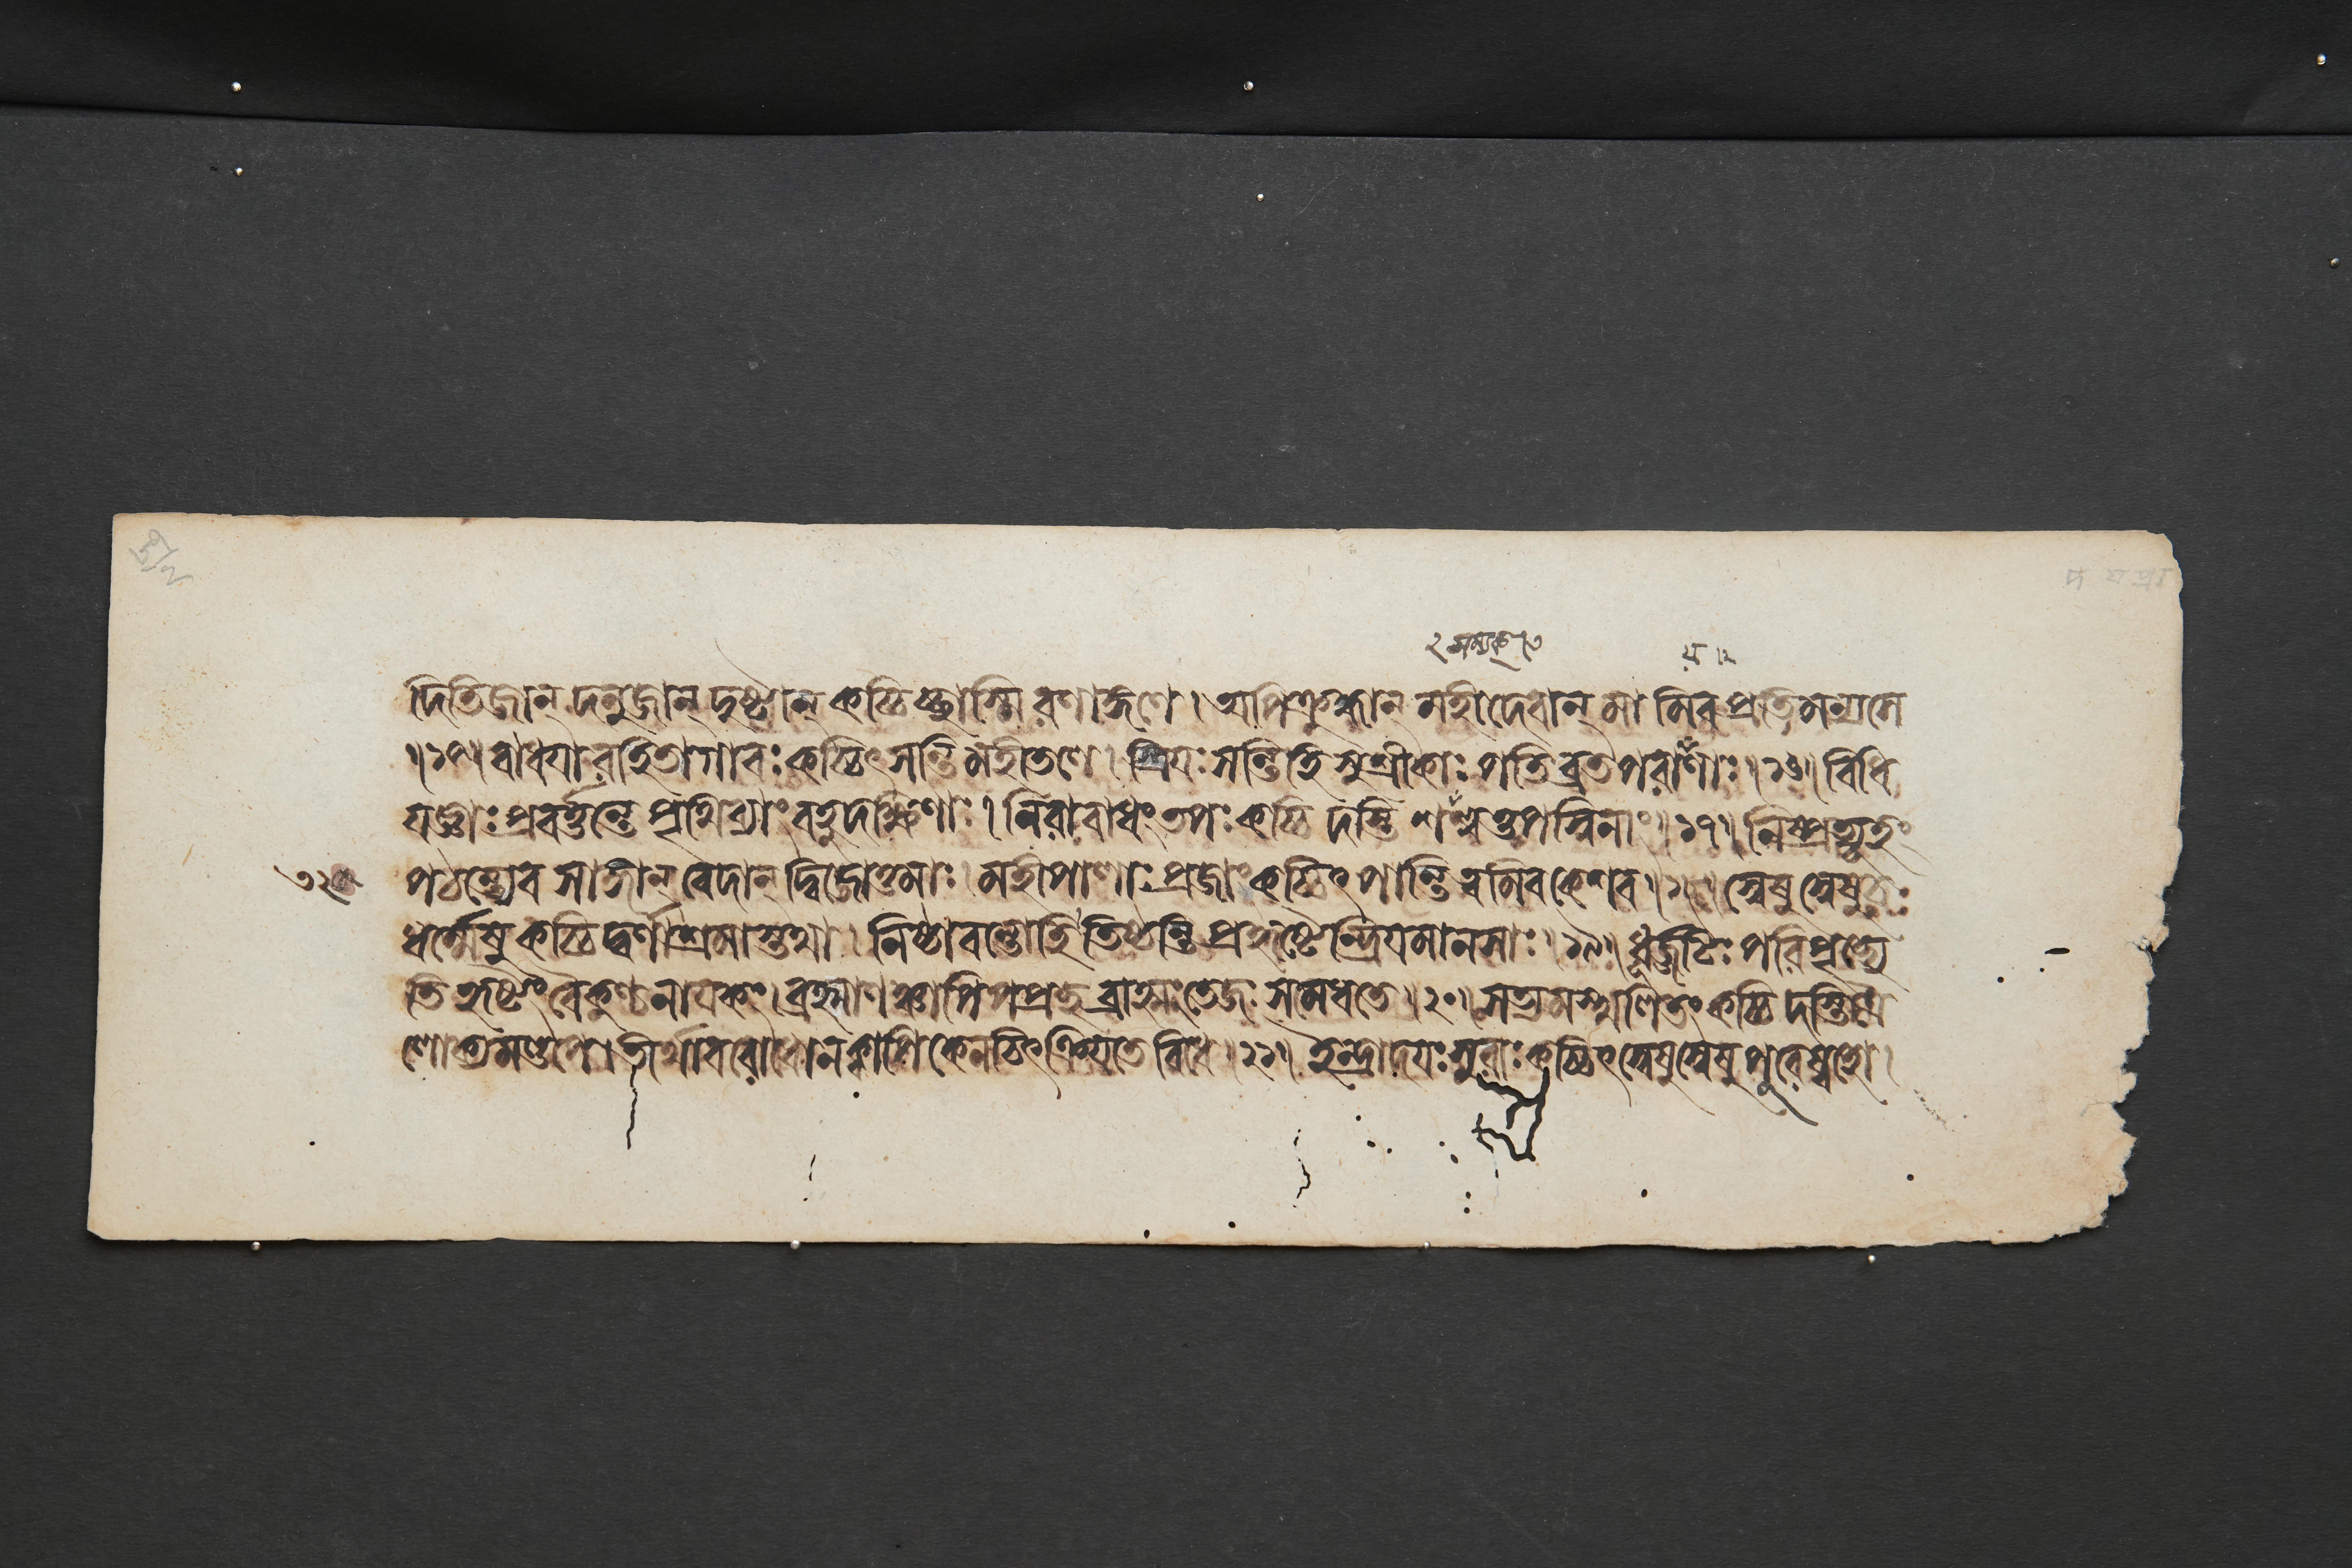 ২ সম্যক্ ৩ য় ।২
দিতিজান্ দনুজান্ দুষ্টান্ কচ্চিচ্ছাস্সি রণাঙ্গণে । অপিক্রুধ্যান্ মহীদেবান্ মামিব প্রতিমন্যসে
॥১৫॥ বাধয়া রহিতাগাবঃ কচ্চিৎ সন্তি মহীতলে । স্ত্রিয়ঃ সন্তিহি সুশ্রীকাঃ পতিব্রতপরায়ণাঃ ॥১৬॥ বিধি
যজ্ঞাঃ প্রবর্ত্তন্তে পৃথিব্যাং বহুদক্ষিণাঃ । নিরাবাধং তপঃ কচ্চিদস্তি শশ্বত্তপস্বিনাং ॥১৭॥ নিষ্প্রত্যূহং
পঠন্ত্যেব সাঙ্গান্ বেদান্ দ্বিজোত্তমাঃ । মহীপালাঃ প্রজাঃ কচ্চিৎ পান্তি ত্বমিব কেশব ॥১৮॥ স্বেষু স্বেষু চ
ধর্ম্মেষু কচ্চিদ্বর্ণাশ্রমাস্তথা । নিষ্ঠাবন্তোহি তিষ্ঠন্তি প্রহৃষ্টেন্দ্রিয়মানসাঃ ॥১৯॥ ধূর্জ্জটিঃ পরিপৃচ্ছ্যে
তি হৃষ্টং বৈকুণ্ঠনায়কং । ব্রহ্মাণঞ্চাপি পপ্রচ্ছ ব্রাহ্মং তেজঃ সমেধতে ॥২০॥ সত্যমস্খলিতং কচ্চিদস্তি ত্রৈ
লোক্যমণ্ডপে । তীর্থাবরোধো ন ক্বাপি কেনচিৎ ক্রিয়তে বিধে ॥২১॥ ইন্দ্রাদয়ঃ সুরাঃ কচ্চিৎ স্বেষু স্বেষু পুরেষ্বহো ।